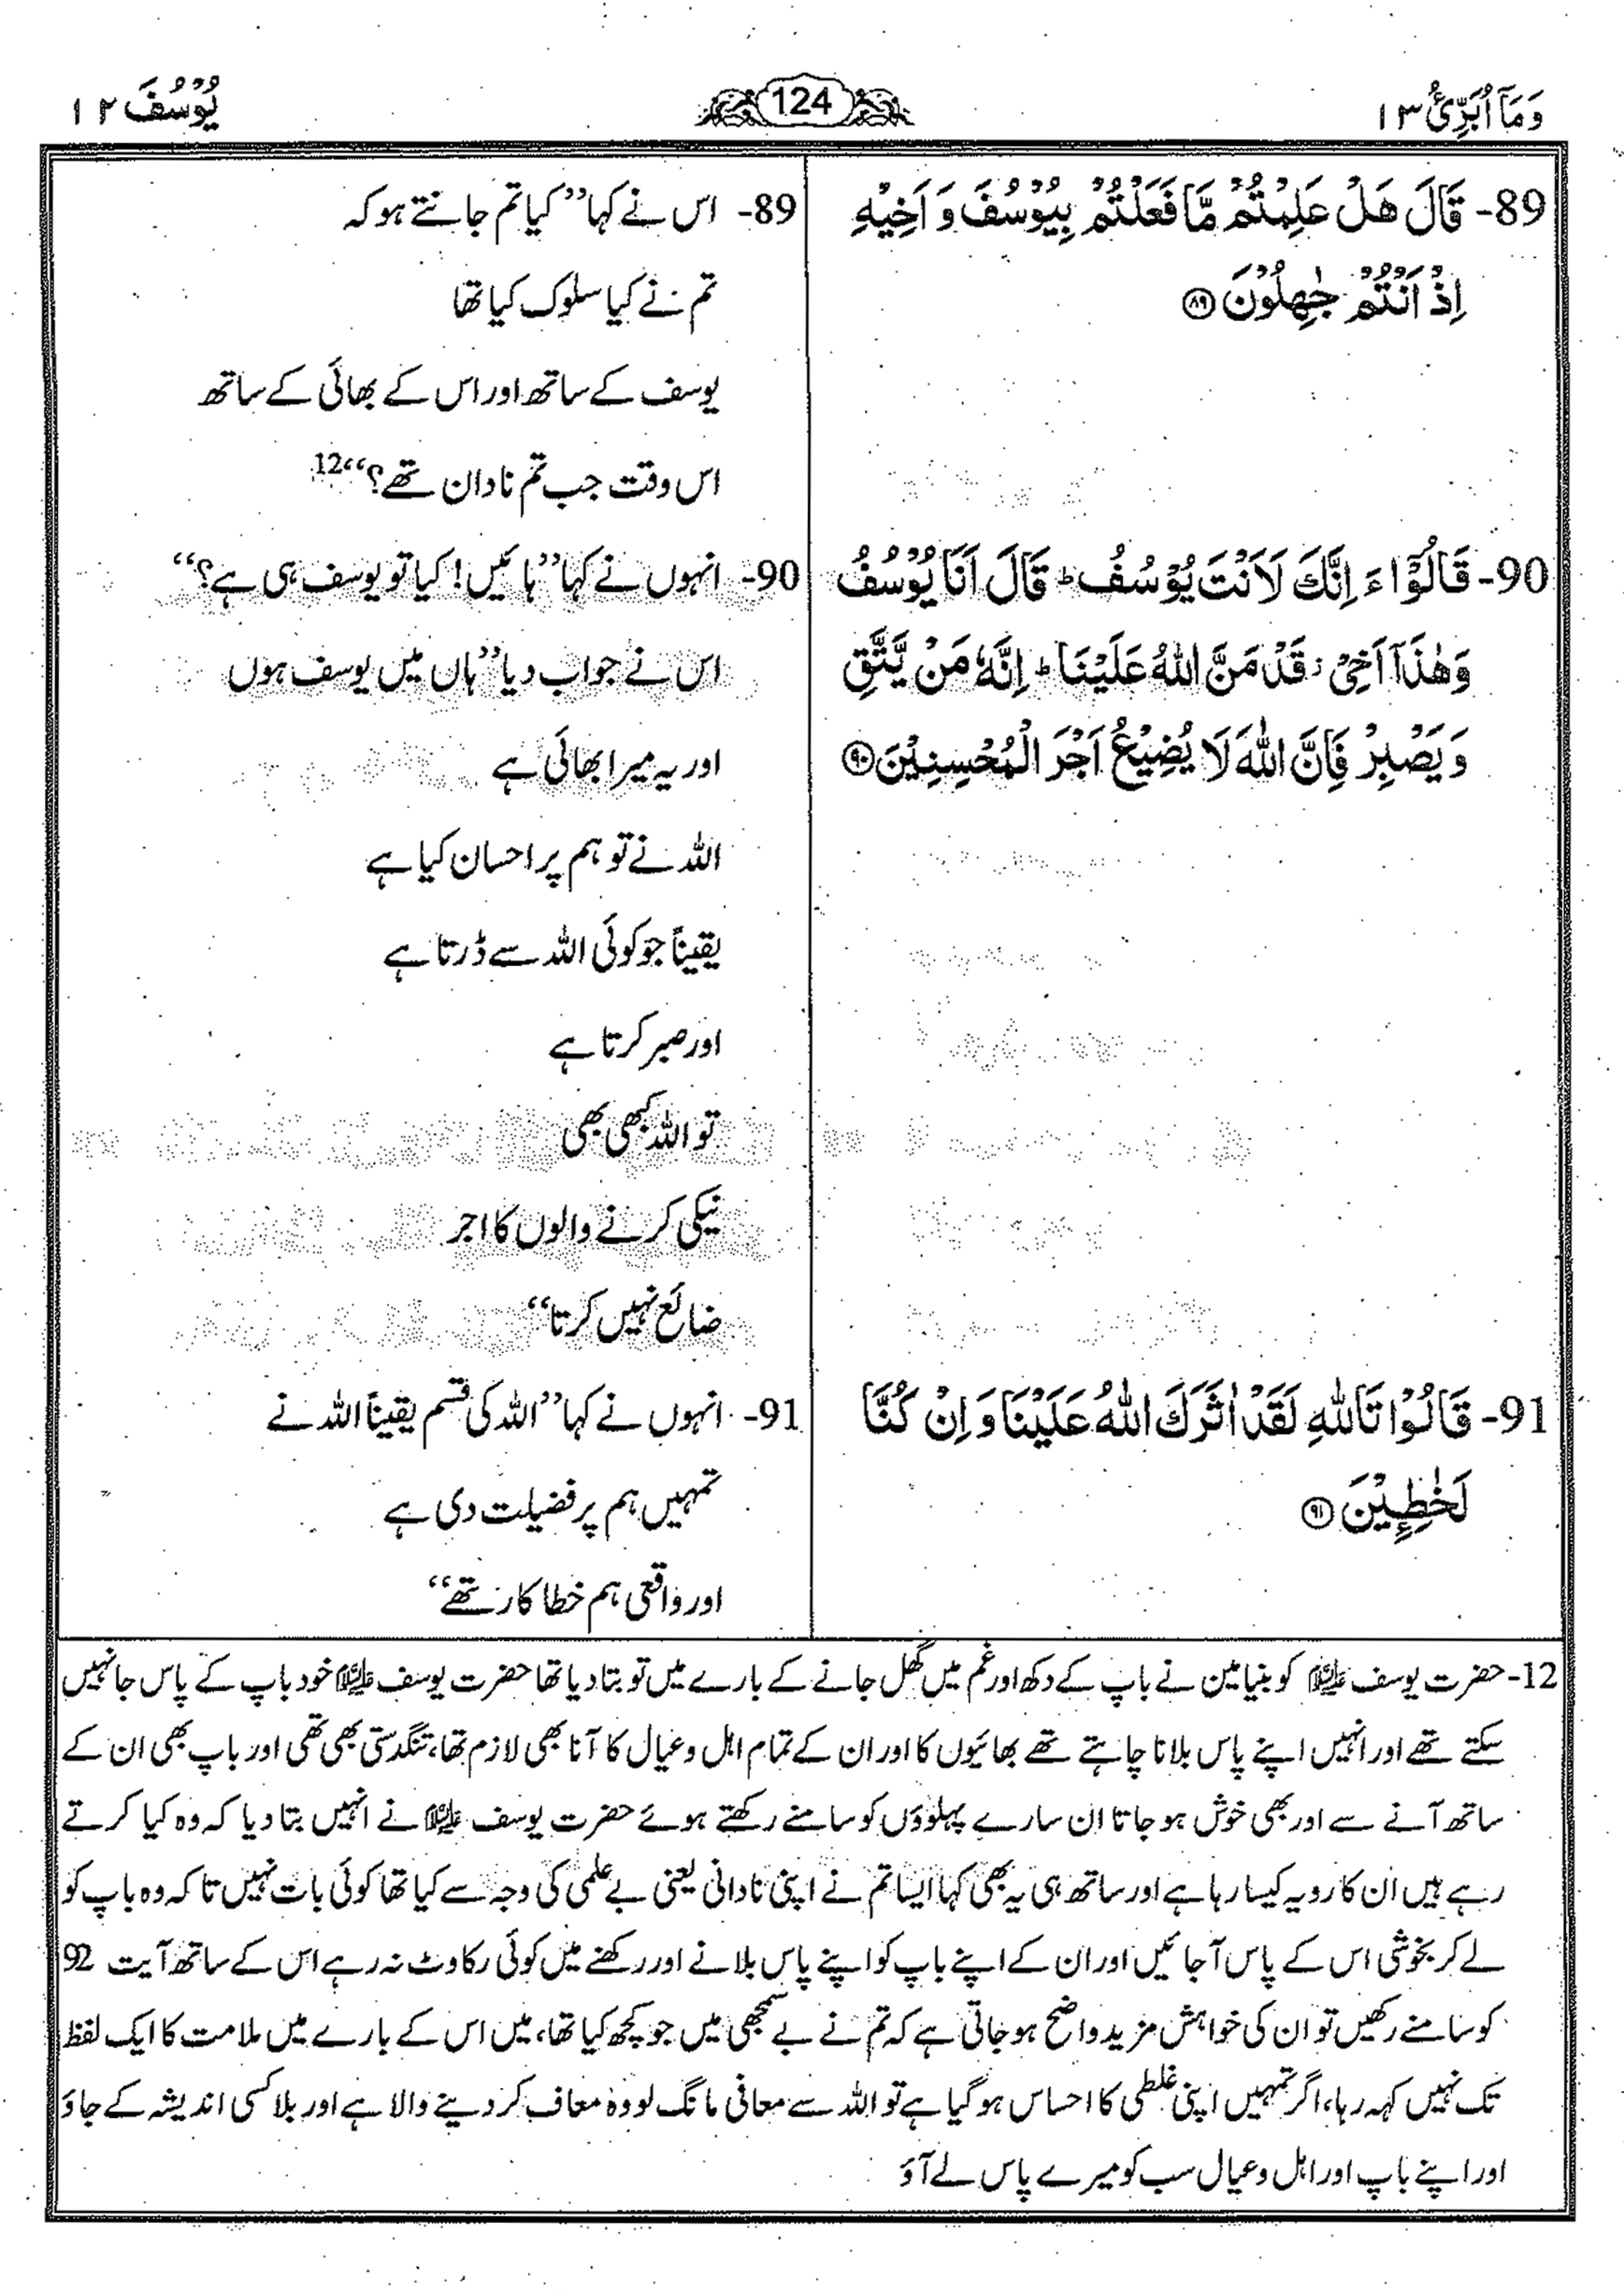 وَمَآ اُبَرِّئُ ۱۳
124
یُوْسُفَ ۱۲
89- قَالَ هَلْ عَلِمْتُمْ مَّا فَعَلْتُمْ بِیُوْسُفَ وَ اَخِیْهِ
اِذْ اَنْتُمْ جٰهِلُوْنَ ﴿۸۹﴾
90- قَالُوْۤا ءَ اِنَّكَ لَاَنْتَ یُوْسُفُ ؕ قَالَ اَنَا یُوْسُفُ
وَ هٰذَاۤ اَخِیْ ؗ قَدْ مَنَّ اللّٰهُ عَلَیْنَا ؕ اِنَّهٗ مَنْ یَّتَّقِ
وَ یَصْبِرْ فَاِنَّ اللّٰهَ لَا یُضِیْعُ اَجْرَ الْمُحْسِنِیْنَ ﴿۹۰﴾
91- قَالُوْا تَاللّٰهِ لَقَدْ اٰثَرَكَ اللّٰهُ عَلَیْنَا وَ اِنْ كُنَّا
لَخٰطِـِٕیْنَ ﴿۹۱﴾
89- اس نے کہا ”کیا تم جانتے ہو کہ
تم نے کیا سلوک کیا تھا
یوسف کے ساتھ اور اس کے بھائی کے ساتھ
اس وقت جب تم نادان تھے؟“12
90- انہوں نے کہا ”ہائیں! کیا تو یوسف ہی ہے؟“
اس نے جواب دیا ”ہاں میں یوسف ہوں
اور یہ میرا بھائی ہے
اللہ نے تو ہم پر احسان کیا ہے
یقیناً جو کوئی اللہ سے ڈرتا ہے
اور صبر کرتا ہے
تو اللہ کبھی بھی
نیکی کرنے والوں کا اجر
ضائع نہیں کرتا“
91- انہوں نے کہا ”اللہ کی قسم یقیناً اللہ نے
تمہیں ہم پر فضیلت دی ہے
اور واقعی ہم خطا کار تھے“
12- حضرت یوسف علیہ السلام کو بنیامین نے باپ کے دکھ اور غم میں گھل جانے کے بارے میں تو بتا دیا تھا حضرت یوسف علیہ السلام خود باپ کے پاس جا نہیں
سکتے تھے اور انہیں اپنے پاس بلانا چاہتے تھے بھائیوں کا اور ان کے تمام اہل و عیال کا آنا بھی لازم تھا، تنگدستی بھی تھی اور باپ بھی ان کے
ساتھ آنے سے اور بھی خوش ہو جاتا ان سارے پہلوؤں کو سامنے رکھتے ہوئے حضرت یوسف علیہ السلام نے انہیں بتا دیا کہ وہ کیا کرتے
رہے ہیں ان کا رویہ کیسا رہا ہے اور ساتھ ہی یہ بھی کہا ایسا تم نے اپنی نادانی یعنی بے علمی کی وجہ سے کیا تھا کوئی بات نہیں تا کہ وہ باپ کو
لے کر بخوشی اس کے پاس آ جائیں اور ان کے اپنے باپ کو اپنے پاس بلانے اور رکھنے میں کوئی رکاوٹ نہ رہے اس کے ساتھ آیت 92
کو سامنے رکھیں تو ان کی خواہش مزید واضح ہو جاتی ہے کہ تم نے بے سمجھی میں جو کچھ کیا تھا، میں اس کے بارے میں ملامت کا ایک لفظ
تک نہیں کہہ رہا، اگر تمہیں اپنی غلطی کا احساس ہو گیا ہے تو اللہ سے معافی مانگ لو وہ معاف کر دینے والا ہے اور بلا کسی اندیشہ کے جاؤ
اور اپنے باپ اور اہل و عیال سب کو میرے پاس لے آؤ